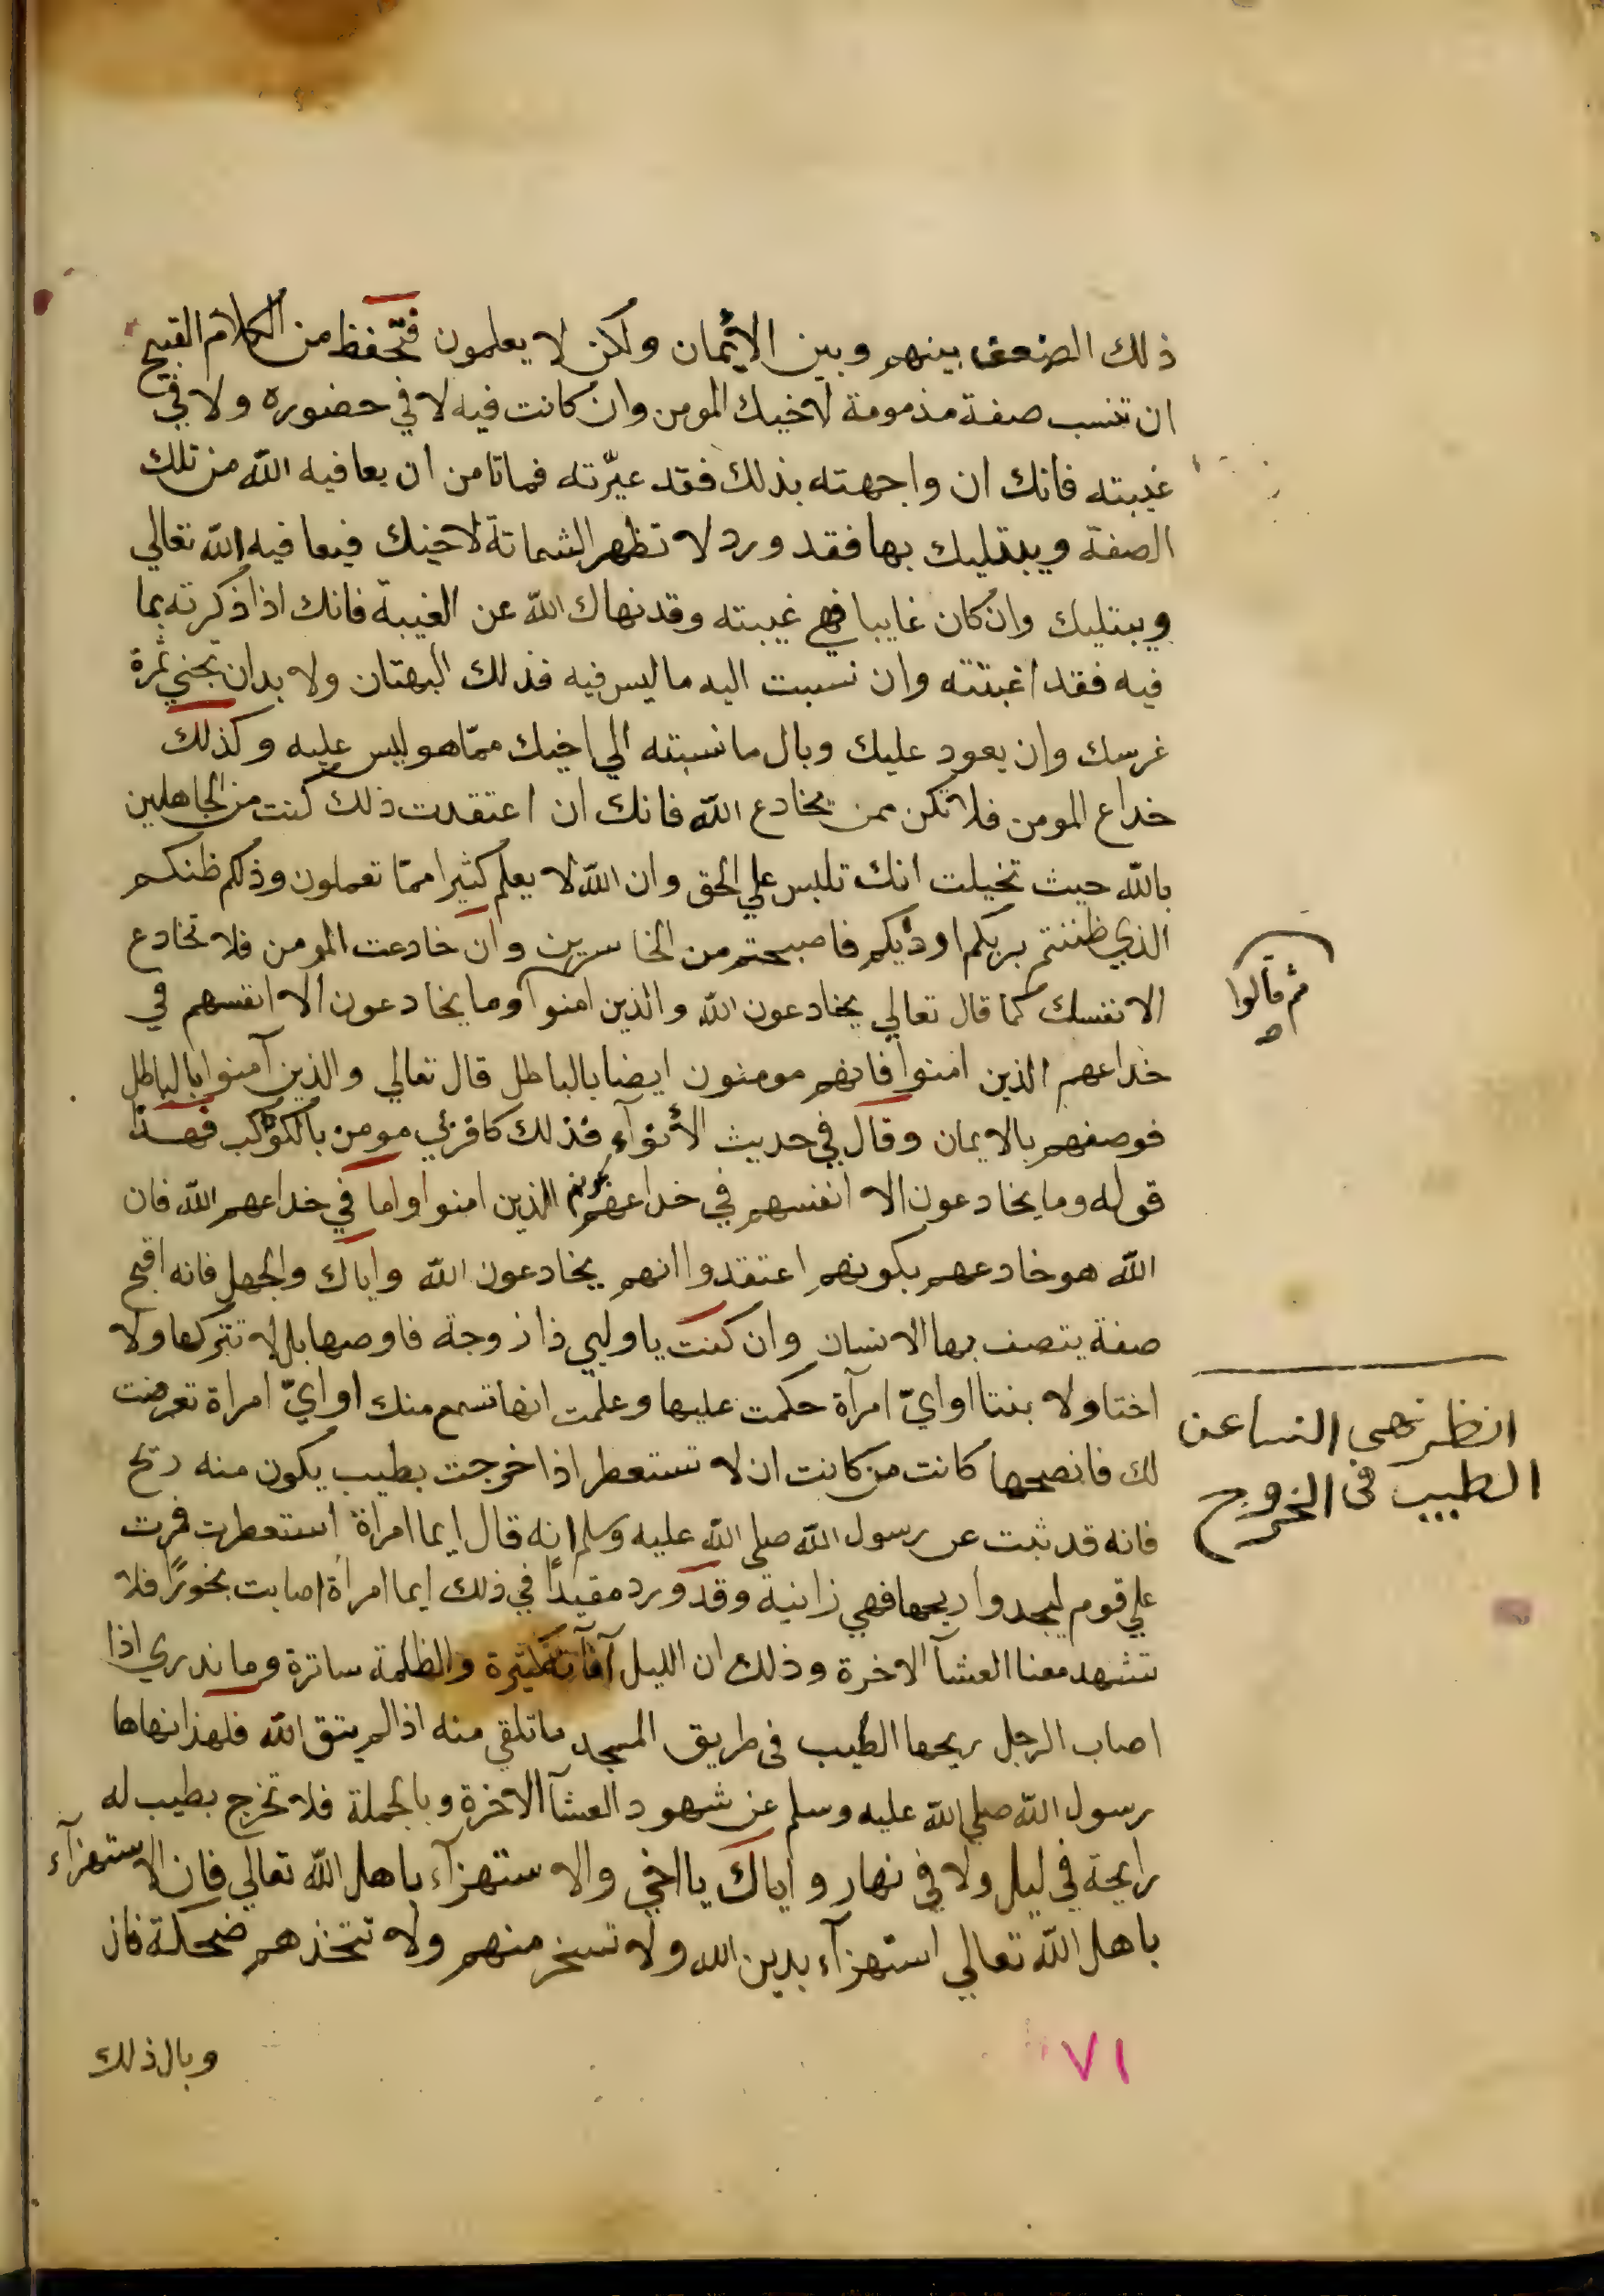 ذلك الضعف بينهم وبين الايمان ولكن لا يعلمون فتحفظ من الكلام القبيح
ان تنسب صفة مذمومة لاخيك المومن وان كانت فيه لا في حضوره ولا في
غيبته فانك ان واجهته بذلك فقد عيّرته فما تامن ان يعافيه الله من تلك
الصفة ويبتليك بها فقد ورد لا تظهر الشماتة لاخيك فيعافيه الله تعالي
ويبتليك وان كان غايبا فهي غيبته وقد نهاك الله عن الغيبة فانك اذا ذكرته بما
فيه فقد اغبتته وان نسبت اليه ما ليس فيه فذلك البهتان ولا بد ان تجني ثمرة
غرسك وان يعود عليك وبال ما نسبته الي اخيك ممّا هو ليس عليه وكذلك
خداع المومن فلا تكن ممن يخادع الله فانك ان اعتقدت ذلك كنت من الجاهلين
بالله حيث تخيلت انك تلبس علي الحق وان الله لا يعلم كثيرا ممّا تعملون وذلكم ظنكم
الذي ظننتم بربكم ارديكم فاصبحتم من الخاسرين وان خادعت المومن فلا تخادع
الا نفسك كما قال تعالي يخادعون الله والذين امنوا وما يخادعون الا انفسهم في
ثم قالوا
خداعهم الذين امنوا فانهم مومنون ايضا بالباطل قال تعالي والذين آمنوا بالباطل
فوصفهم بالايمان وقال في حديث الأنوآء فذلك كافر بي مومن بالكوكب فهذا
قوله وما يخادعون الا انفسهم في خداعهم الذين امنوا واما في خداعهم الله فان
الله هو خادعهم بكونهم اعتقدوا انهم يخادعون الله واياك والجهل فانه اقبح
صفة يتصف بها الانسان وان كنت يا وليي ذا زوجة فاوصها بل لا تتركها ولا
اختا ولا بنتا او ايّ امرآة حكمت عليها وعلمت انها تسمع منك او ايّ امراة تعرضت
لك فانصحها كانت من كانت ان لا تستعطر اذا خرجت بطيب يكون منه ريح
انظر نهي النسا عن
الطيب في الخروج
فانه قد ثبت عن رسول الله صلي الله عليه وسلم انه قال ايما امراة استعطرت فمرت
علي قوم ليجدوا ريحها فهي زانية وقد ورد مقيدًا في ذلك ايما امرأة اصابت بخورًا فلا
تشهد معنا العشآ الاخرة وذلك ان الليل آفاته كثيرة والظلمة ساترة وما ندري اذا
اصاب الرجل ريحها الطيب في طريق المسجد ما تلقي منه اذا لم يتق الله فلهذا نهاها
رسول الله صلي الله عليه وسلم عن شهود العشآ الاخرة وبالجملة فلا تخرج بطيب له
رايحة في ليل ولا في نهار واياك يا اخي والاستهزآء باهل الله تعالي فان الاستهزآء
باهل الله تعالي استهزآء بدين الله ولا تسخر منهم ولا تتخذهم ضحكة فان
وبال ذلك
٧١